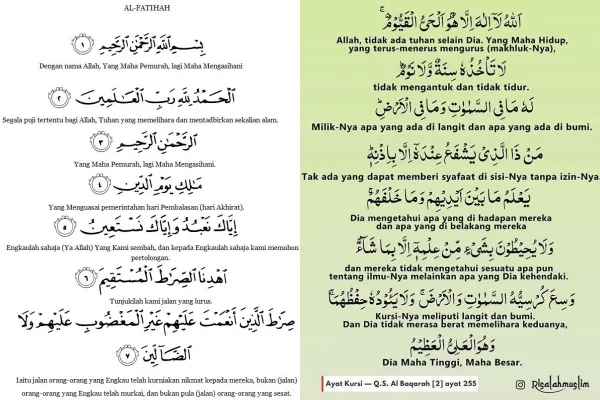 AL-FATIHAH
بِسْمِ اللَّهِ الرَّحْمَٰنِ الرَّحِيمِ ١
Dengan nama Allah, Yang Maha Pemurah, lagi Maha Mengasihani
الْحَمْدُ لِلَّهِ رَبِّ الْعَالَمِينَ ٢
Segala puji tertentu bagi Allah, Tuhan yang memelihara dan mentadbirkan sekalian alam.
الرَّحْمَٰنِ الرَّحِيمِ ٣
Yang Maha Pemurah, lagi Maha Mengasihani.
مَالِكِ يَوْمِ الدِّينِ ٤
Yang Menguasai pemerintahan hari Pembalasan (hari Akhirat).
إِيَّاكَ نَعْبُدُ وَإِيَّاكَ نَسْتَعِينُ ٥
Engkaulah sahaja (Ya Allah) Yang Kami sembah, dan kepada Engkaulah sahaja kami memohon
pertolongan.
اهْدِنَا الصِّرَاطَ الْمُسْتَقِيمَ ٦
Tunjukilah kami jalan yang lurus.
صِرَاطَ الَّذِينَ أَنْعَمْتَ عَلَيْهِمْ غَيْرِ الْمَغْضُوبِ عَلَيْهِمْ وَلَا
الضَّالِّينَ ٧
Iaitu jalan orang-orang yang Engkau telah kurniakan nikmat kepada mereka, bukan (jalan)
orang-orang yang Engkau telah murkai, dan bukan pula (jalan) orang-orang yang sesat.
اَللّٰهُ لَآ اِلٰهَ اِلَّا هُوَۚ اَلْحَيُّ الْقَيُّوْمُ ەۚ
Allah, tidak ada tuhan selain Dia. Yang Maha Hidup,
yang terus-menerus mengurus (makhluk-Nya),
لَا تَأْخُذُهٗ سِنَةٌ وَّلَا نَوْمٌۗ
tidak mengantuk dan tidak tidur.
لَهٗ مَا فِى السَّمٰوٰتِ وَمَا فِى الْاَرْضِۗ
Milik-Nya apa yang ada di langit dan apa yang ada di bumi.
مَنْ ذَا الَّذِيْ يَشْفَعُ عِنْدَهٗٓ اِلَّا بِاِذْنِهٖۗ
Tak ada yang dapat memberi syafaat di sisi-Nya tanpa izin-Nya.
يَعْلَمُ مَا بَيْنَ اَيْدِيْهِمْ وَمَا خَلْفَهُمْۚ
Dia mengetahui apa yang di hadapan mereka
dan apa yang di belakang mereka
وَلَا يُحِيْطُوْنَ بِشَيْءٍ مِّنْ عِلْمِهٖٓ اِلَّا بِمَا شَاۤءَۚ
dan mereka tidak mengetahui sesuatu apa pun
tentang ilmu-Nya melainkan apa yang Dia kehendaki.
وَسِعَ كُرْسِيُّهُ السَّمٰوٰتِ وَالْاَرْضَۚ وَلَا يَـُٔوْدُهٗ حِفْظُهُمَاۚ
Kursi-Nya meliputi langit dan bumi.
Dan Dia tidak merasa berat memelihara keduanya,
وَهُوَ الْعَلِيُّ الْعَظِيْمُ
Dia Maha Tinggi, Maha Besar.
Ayat Kursi — Q.S. Al Baqarah [2] ayat 255
Risalahmuslim